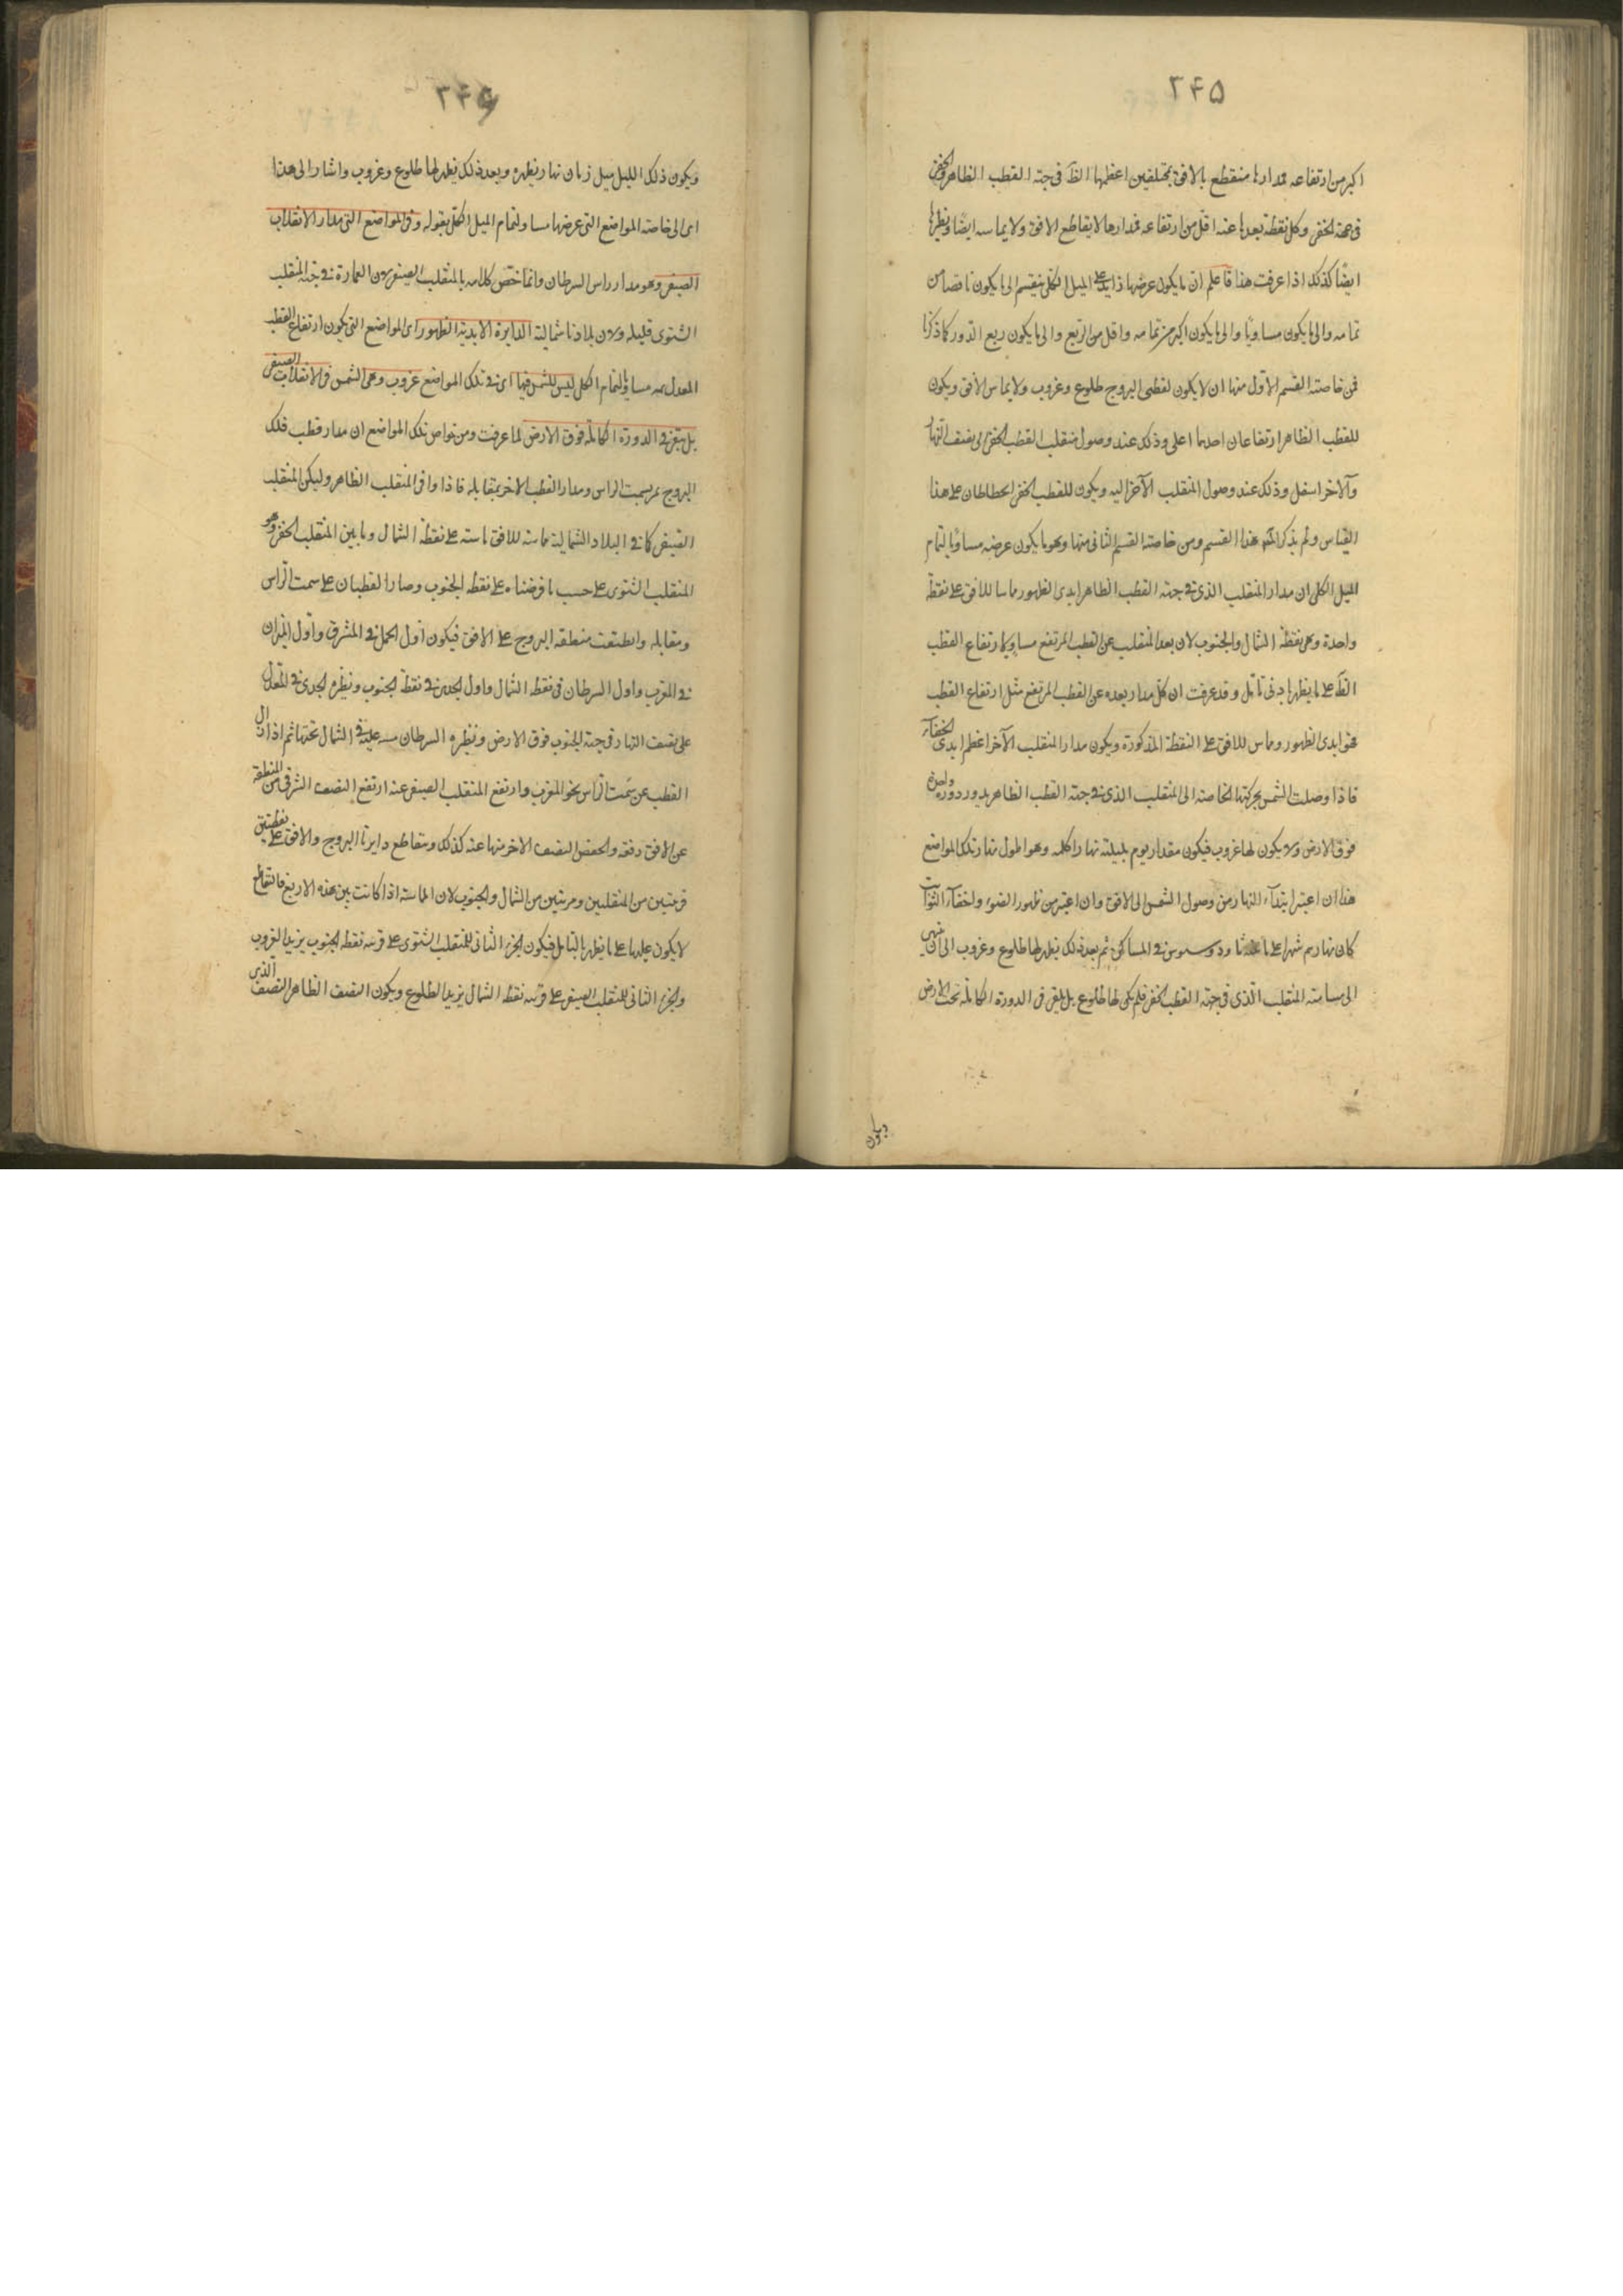 ۲۴۵
اكبر من ارتفاعه فمدارها منقطع بالافق بمختلفين اعظمها الظ فى جهة القطب الظاهر والخفى
فى جهة الخفى وكل نقطة بعدها عنه اقل من ارتفاعه فمدارها لا يقاطع الافق ولا يماسه ايضا ونظيرها
ايضا كذلك اذا عرفت هذا فاعلم ان ما يكون عرضها زايد على الميل الكلى ينقسم الى ما يكون ناقصا من
تمامه والى ما يكون مساويا والى ما يكون اكبر من تمامه واقل من الربع والى ما يكون ربع الدور كما ذكرنا
فمن خاصته القسم الاول منها ان لا يكون لقطبى البروج طلوع وغروب ولا يماس الافق ويكون
للقطب الظاهر ارتفاعان احدهما اعلى وذلك عند وصول منقلب القطب الخفى الى نصف النهار
والآخر اسفل وذلك عند وصول المنقلب الآخر اليه ويكون للقطب الخفى انحطاطان على هذا
القياس ولم يذكر هذا القسم ومن خاصته القسم الثانى منها وهو ما يكون عرضه مساويا لتمام
الميل الكلى ان مدار المنقلب الذى فى جهة القطب الظاهر ابدى الظهور مماسا للافق على نقطة
واحدة وهى نقطة الشمال والجنوب لان بعد المنقلب عن القطب المرتفع مساو لارتفاع القطب
الظ على ما يظهر بادنى تامل وقد عرفت ان كل مدار بعده عن القطب المرتفع مثل ارتفاع القطب
فهو ابدى الظهور ومماس للافق على النقطة المذكورة ويكون مدار المنقلب الآخر اعظم ابدى الخفاء
فاذا وصلت الشمس بحركتها الخاصة الى المنقلب الذى فى جهة القطب الظاهر يدور دورة واحدة
فوق الارض ولا يكون لها غروب فيكون مقدار يوم بليلته نهارا كله وهو اطول نهار تلك المواضع
هذا ان اعتبر ابتداء النهار من وصول الشمس الى الافق وان اعتبر من ظهور الضوء واختفاء الثوابت
كان نهارهم شهرا على ما ثاودوسيوس فى المساكن ثم بعد ذلك يظهر لها طلوع وغروب الى ان ينتهى
الى مسامتة المنقلب الذى فى جهة القطب الخفى فلم يكن لها طلوع بل يبقى فى الدورة الكاملة تحت الارض
ويكون
۲۴۶
ويكون ذلك الليل مثل زمان نهار نظيره وبعد ذلك يظهر لها طلوع وغروب واشار الى هذا
اى الى خاصته المواضع التى عرضها مساو لتمام الميل الكلى بقوله وفى المواضع التى مدار الانقلاب
الصيفى وهو مدار راس السرطان وانما خص كلامه بالمنقلب الصيفى لان العمارة فى جهة المنقلب
الشتوى قليلة ولان بلادنا شمالية الدايرة الابدية الظهور اى المواضع التى يكون ارتفاع القطب
المعدل مساو لتمام الكلى ليس للشمس فيها اى فى تلك المواضع غروب وهى الشمس فى الانقلاب الصيفى
بل يبقى فى الدورة الكاملة فوق الارض لما عرفت ومن خواص تلك المواضع ان مدار قطب فلك
البروج يمر بسمت الراس ومدار القطب الاخر بمقابله فاذا وافى المنقلب الظاهر وليكن المنقلب
الصيفى كما فى البلاد الشمالية مماسته للافق مماسته على نقطة الشمال وما بين المنقلب الخفى وهو
المنقلب الشتوى على حسب ما فرضناه على نقطة الجنوب وصار القطبان على سمت الراس
ومقابله وانطبقت منطقة البروج على الافق فيكون اول الحمل فى المشرق واول الميزان
فى المغرب واول السرطان فى نقطة الشمال واول الجدى فى نقطة الجنوب ونظيره الجدى فى
على نصف النهار فى جهة الجنوب فوق الارض ونظيره السرطان عليه فى الشمال تحتها ثم اذا زال
القطب عن سمت الراس نحو المغرب وارتفع المنقلب الصيفى عنه ارتفع النصف الشرقى من المنطقة
عن الافق دفعة وانخفض النصف الاخر منها عنه كذلك وتقاطع دايرتا البروج والافق على نقطتين
قريبتين من المنقلبين ومرتبتين من الشمال والجنوب لان المماسة اذا كانت بين هذه الاربع فالتقاطع
لا يكون عليها على ما يظهر بالتامل فيكون الجزء الثانى للمنقلب الشتوى على قرب نقطة الجنوب يريد الغروب
والجزء الثانى للمنقلب الصيفى على قرب نقطة الشمال يريد الطلوع ويكون النصف الظاهر النصف الذى